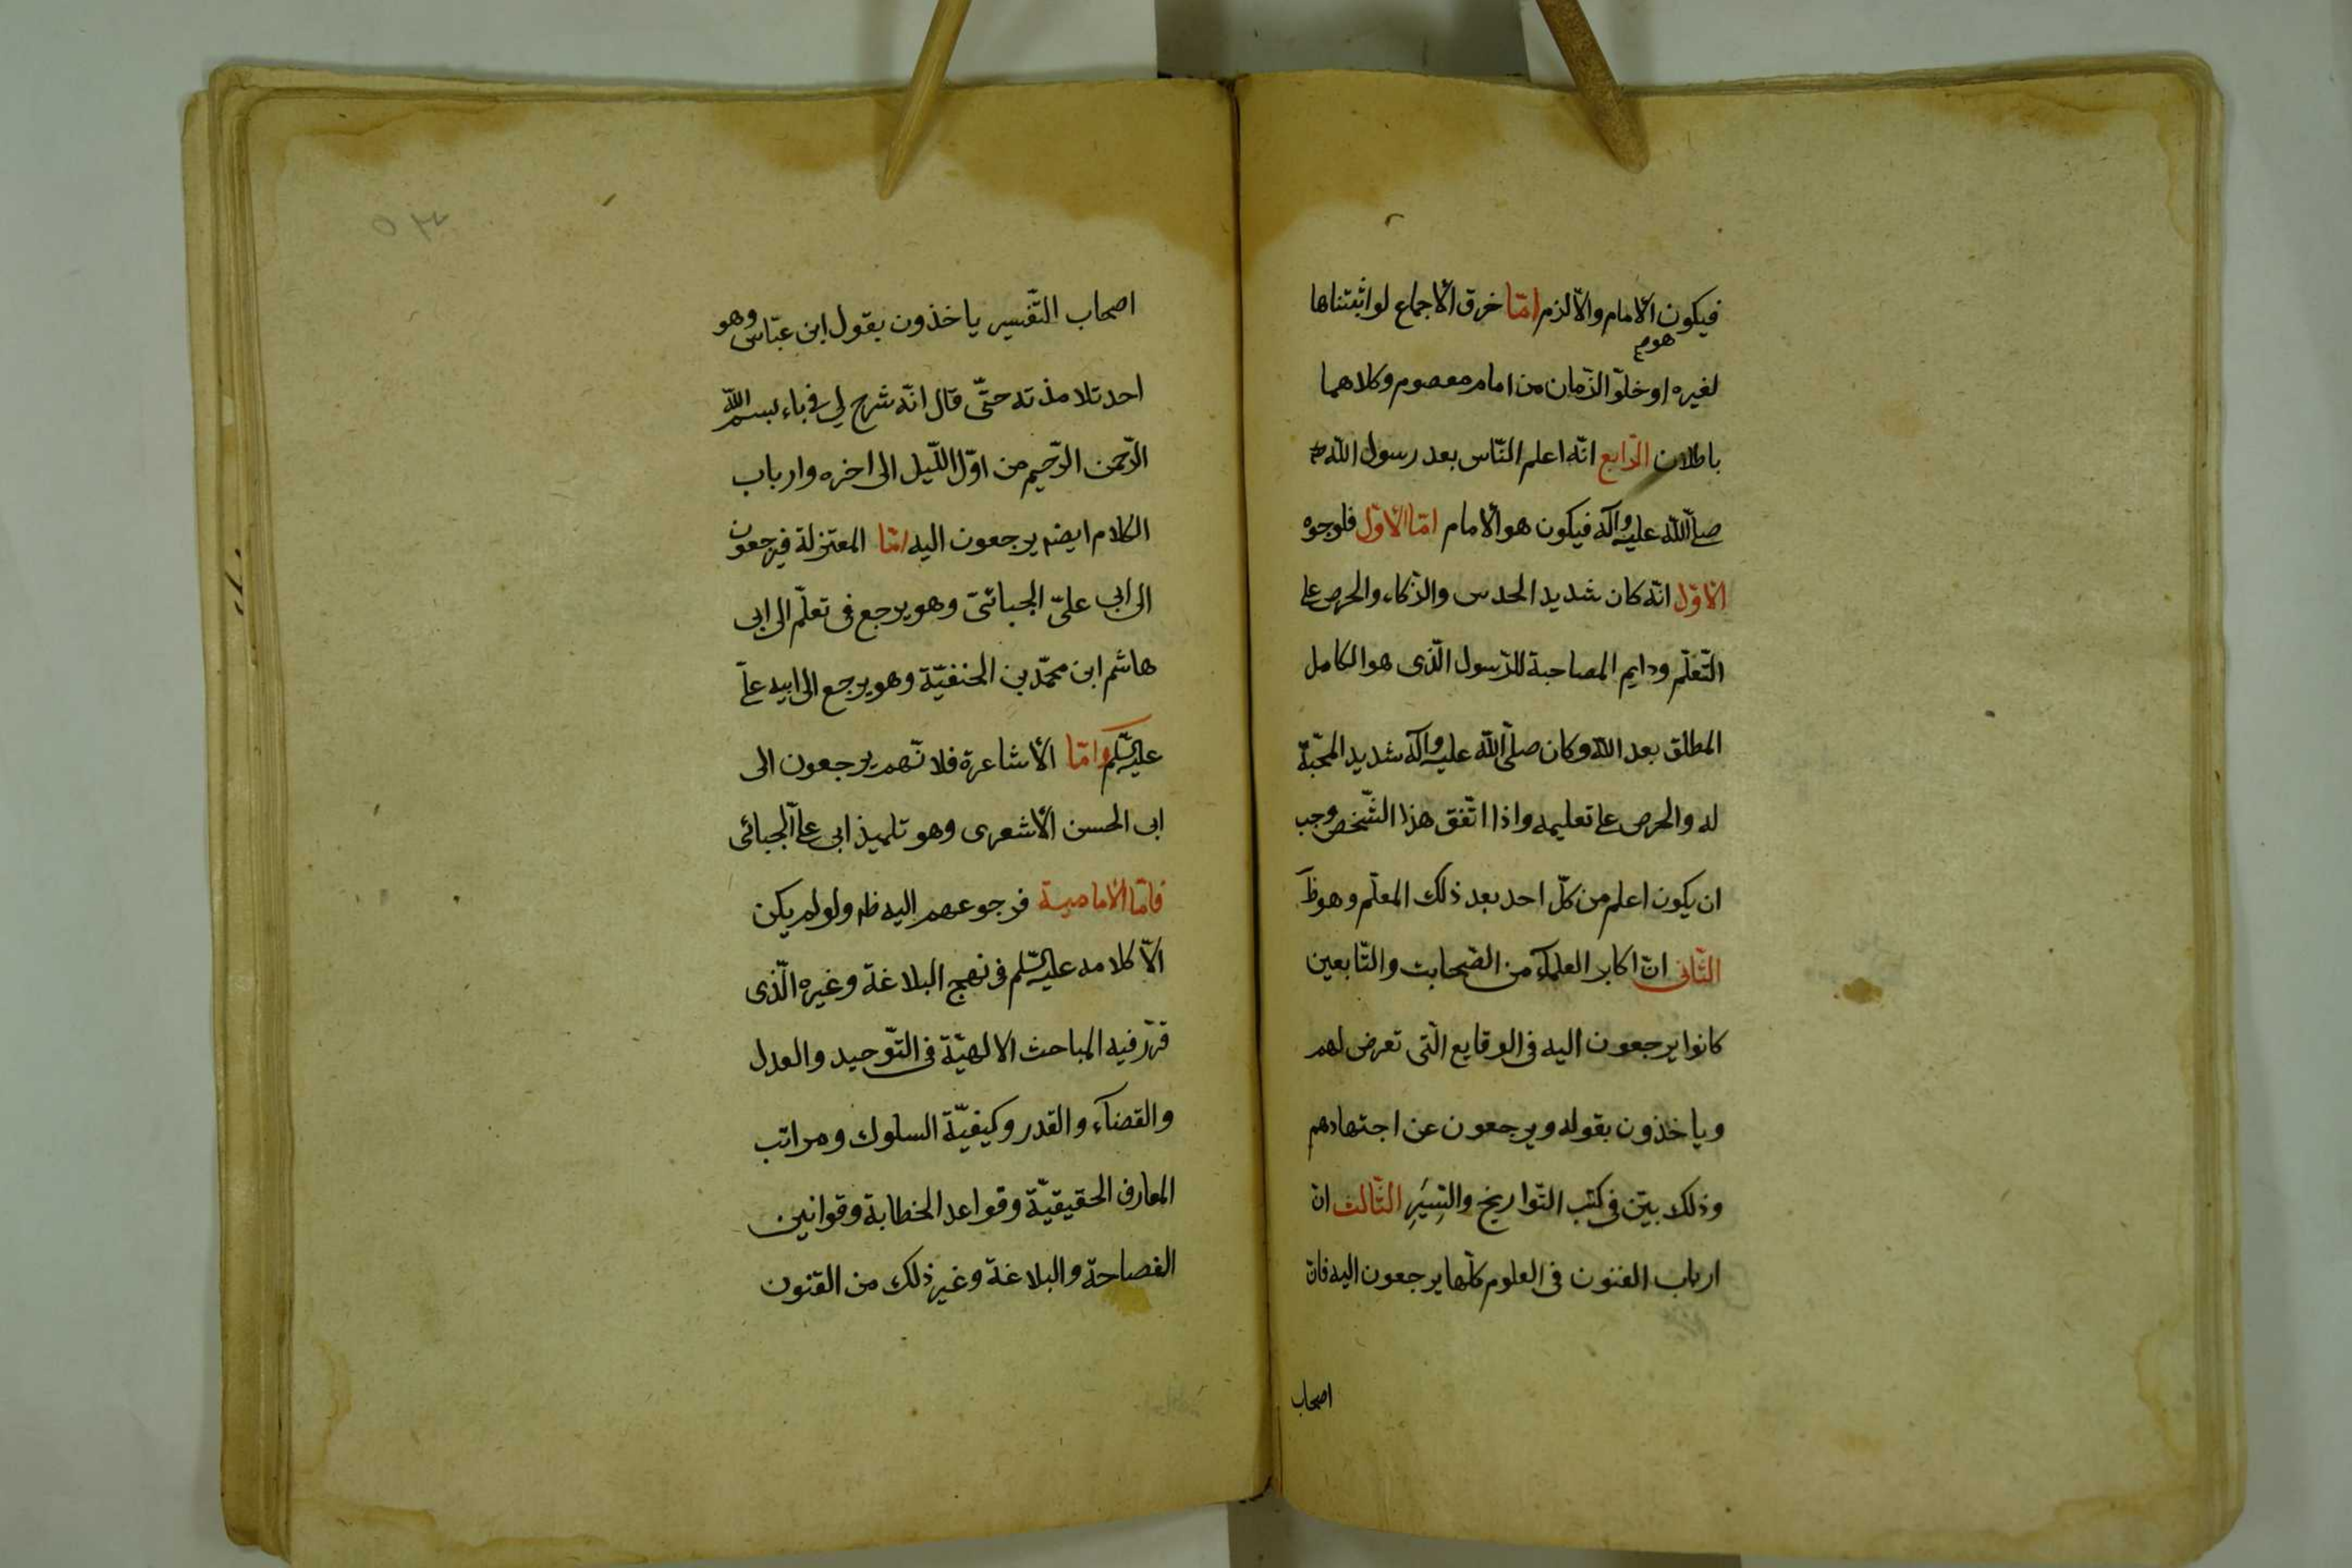 فيكون الأمام والّا لزم امّا خرق الأجماع لو اثبتناها
هو
لغيره او خلوّ الزّمان من امام معصوم وكلاهما
باطلان الرّابع انّه اعلم النّاس بعد رسول الله
صلّى الله عليه وآله فيكون هو الأمام امّا الأوّل فلوجوه
الأوّل انّه كان شديد الحدس والذّكاء والحرص على
التّعلّم ودايم المصاحبة للرّسول الّذى هو الكامل
المطلق بعد الله وكان صلّى الله عليه وآله شديد المحبّة
له والحرص على تعليمه واذا اتّفق هذا الشّخص وجب
ان يكون اعلم من كلّ احد بعد ذلك المعلّم وهو ظ
الثّانى انّ اكابر العلمآء من الصّحابة والتّابعين
كانوا يرجعون اليه فى الوقايع الّتى تعرض لهم
وياخذون بقوله ويرجعون عن اجتهادهم
وذلك بيّن فى كتب التّواريخ والسِّيَرِ الثّالث انّ
ارباب الفنون فى العلوم كلّها يرجعون اليه فانّ
اصحاب
٥٣
اصحاب التّفسير ياخذون بقول ابن عبّاس وهو
احد تلامذته حتّى قال انّه شرح لى فى باء بسم الله
الرّحمن الرّحيم من اوّل اللّيل الى اخره وارباب
الكلام ايضم يرجعون اليه امّا المعتزلة فيرجعون
الى ابى علىّ الجبائىّ وهو يرجع فى تعلّم الى ابى
هاشم ابن محمّد بن الحنفيّة وهو يرجع الى ابيه علىّ
عليه السّلم وامّا الأشاعرة فلانّهم يرجعون الى
ابى الحسن الأشعرى وهو تلميذ ابى علىّ الجبائى
فامّا الأمامية فرجوعهم اليه ظه ولو لم يكن
الّا كلامه عليه السّلم فى نهج البلاغة وغيره الّذى
قرّر فيه المباحث الالهيّة فى التّوحيد والعدل
والقضآء والقدر وكيفيّة السلوك ومراتب
المعارف الحقيقيّة وقواعد الخطابة وقوانين
الفصاحة والبلاغة وغير ذلك من الفنون